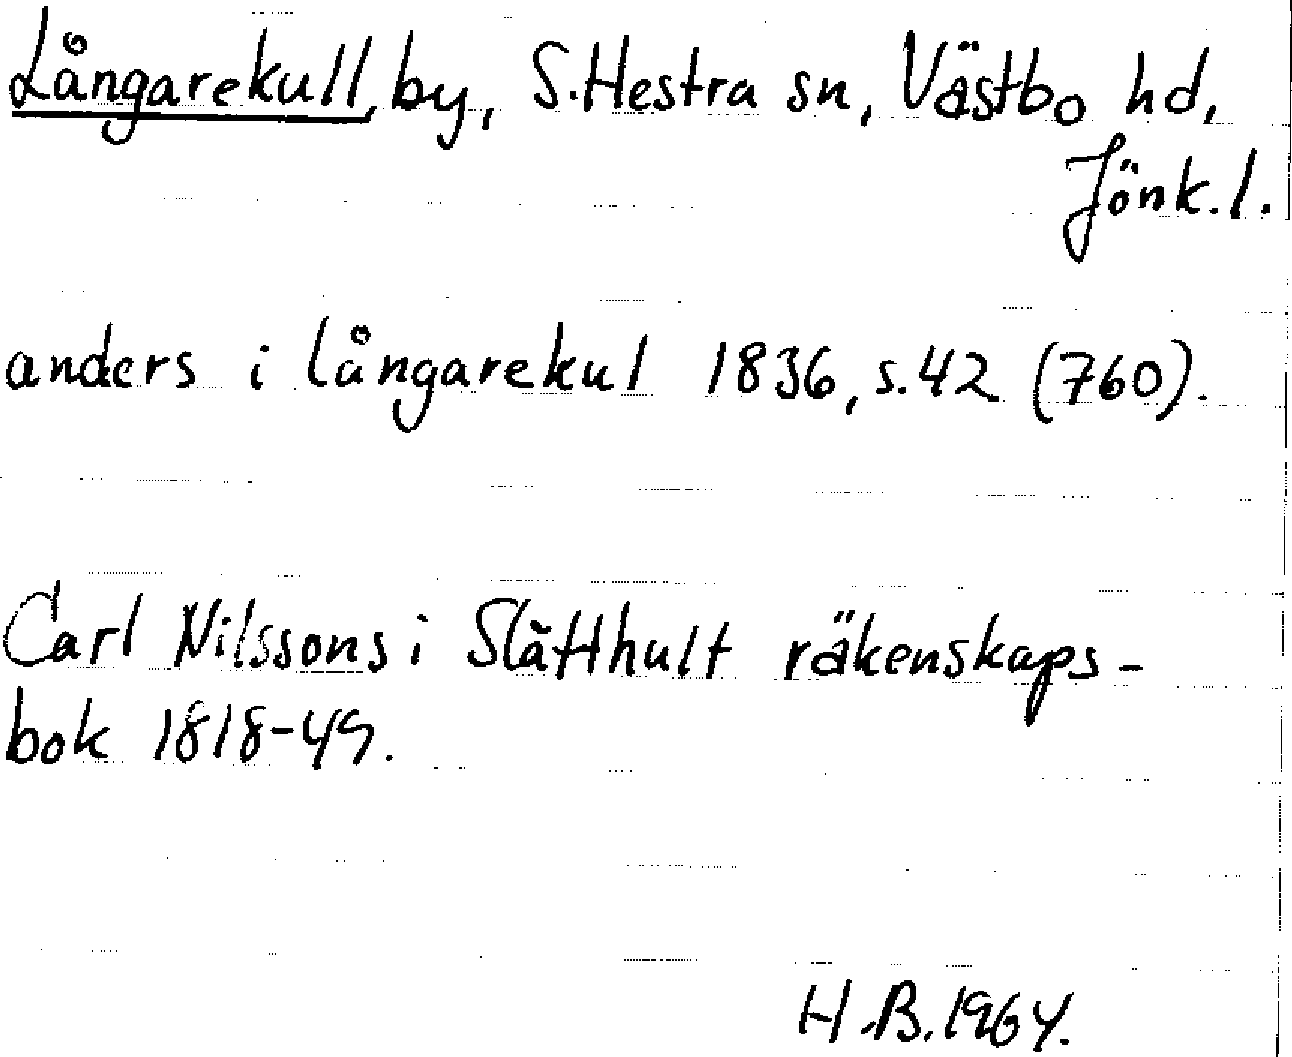 Långarekull, by, S. Hestra sn, Västbo hd,
Jönk. l.
anders i långarekul 1836, s. 42 (760).
Carl Nilssons i Slätthult räkenskaps-
bok 1818-49.
H.B. 1964.